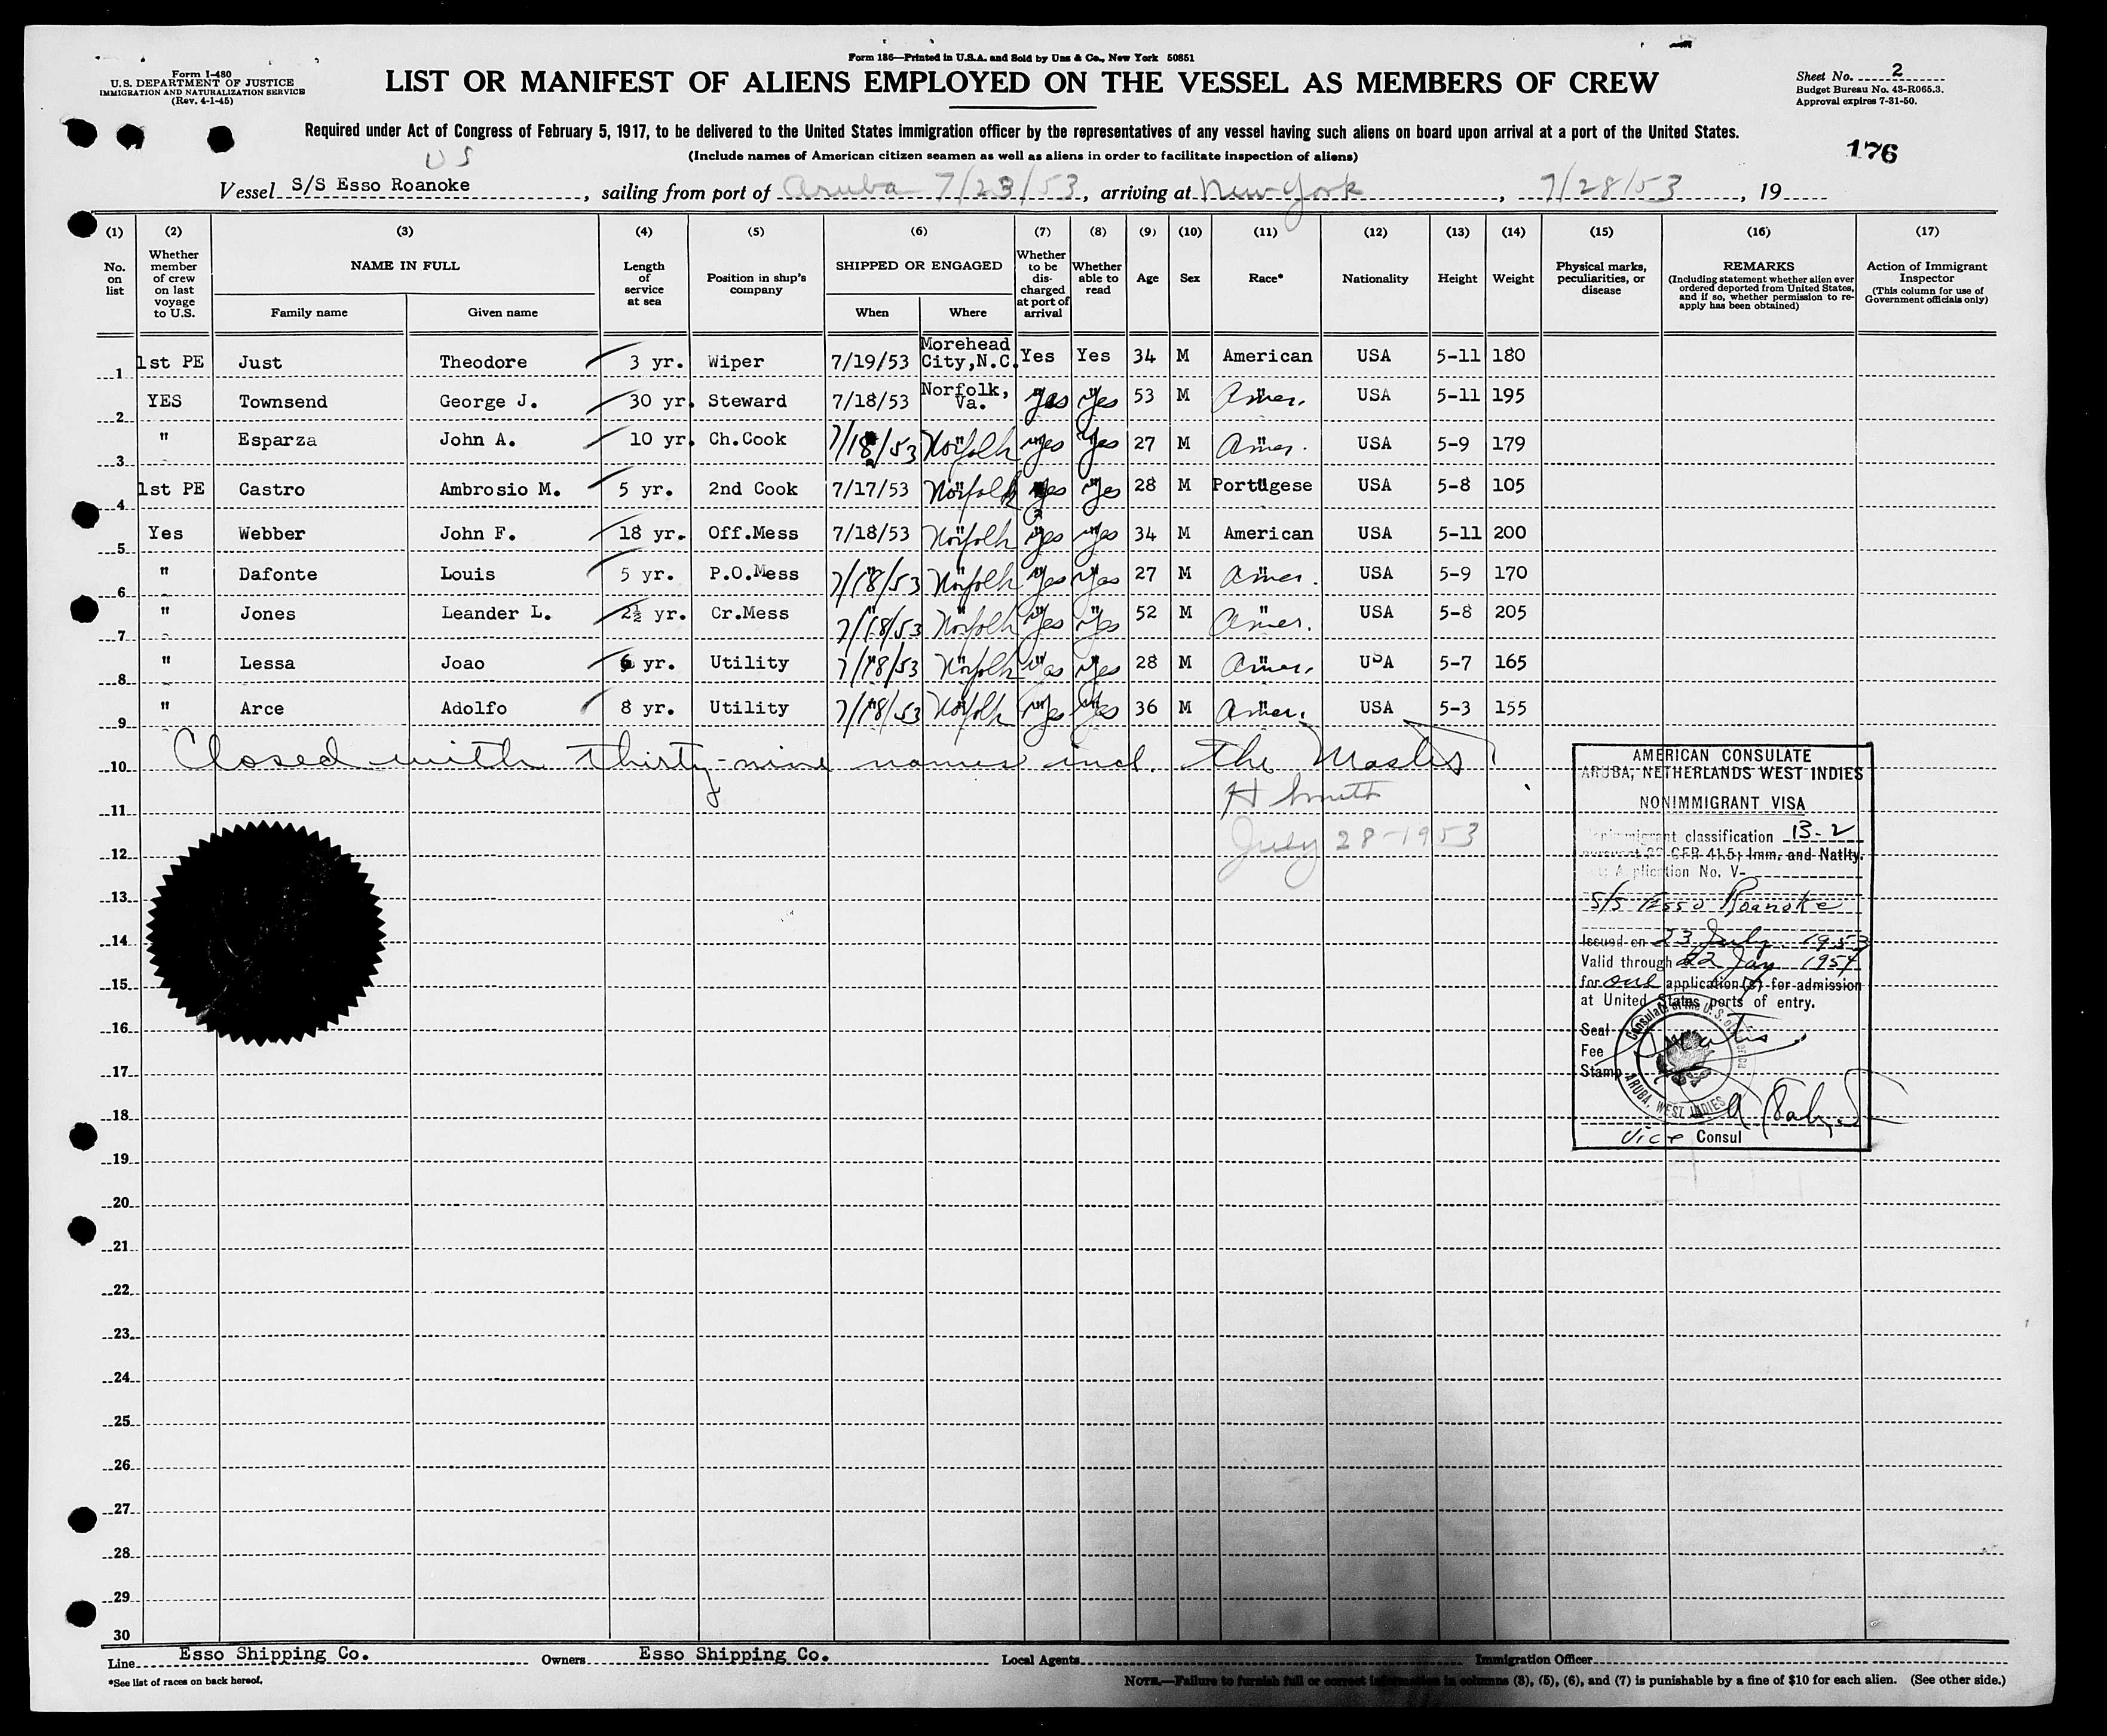 Form 186—Printed in U.S.A. and Sold by Unz & Co., New York 50851
Form I-480
U.S. DEPARTMENT OF JUSTICE
IMMIGRATION AND NATURALIZATION SERVICE
(Rev. 4-1-45)
LIST OR MANIFEST OF ALIENS EMPLOYED ON THE VESSEL AS MEMBERS OF CREW
Sheet No. 2
Budget Bureau No. 43-R065.3.
Approval expires 7-31-50.
Required under Act of Congress of February 5, 1917, to be delivered to the United States immigration officer by the representatives of any vessel having such aliens on board upon arrival at a port of the United States.
(Include names of American citizen seamen as well as aliens in order to facilitate inspection of aliens)
176
US
Vessel S/S Esso Roanoke, sailing from port of Aruba 7/23/53, arriving at New York, 7/28/53, 19
(1) (2) (3) (4) (5) (6) (7) (8) (9) (10) (11) (12) (13) (14) (15) (16) (17)
No. on list
Whether member of crew on last voyage to U.S.
NAME IN FULL
Family name
Given name
Length of service at sea
Position in ship's company
SHIPPED OR ENGAGED
When
Where
Whether to be discharged at port of arrival
Whether able to read
Age
Sex
Race*
Nationality
Height
Weight
Physical marks, peculiarities, or disease
REMARKS
(Including statement whether alien ever ordered deported from United States, and if so, whether permission to re-apply has been obtained)
Action of Immigrant Inspector
(This column for use of Government officials only)
1 1st PE Just Theodore 3 yr. Wiper 7/19/53 Morehead City,N.C. Yes Yes 34 M American USA 5-11 180
2 YES Townsend George J. 30 yr. Steward 7/18/53 Norfolk, Va. Yes Yes 53 M " Amer. USA 5-11 195
3 " Esparza John A. 10 yr. Ch.Cook 7/18/53 Norfolk Yes Yes 27 M " Amer. USA 5-9 179
4 1st PE Castro Ambrosio M. 5 yr. 2nd Cook 7/17/53 Norfolk Yes Yes 28 M Portugese USA 5-8 105
5 Yes Webber John F. 18 yr. Off.Mess 7/18/53 Norfolk Yes Yes 34 M American USA 5-11 200
6 " Dafonte Louis 5 yr. P.O.Mess 7/18/53 Norfolk Yes Yes 27 M " Amer. USA 5-9 170
7 " Jones Leander L. 2½ yr. Cr.Mess 7/18/53 Norfolk Yes Yes 52 M " Amer. USA 5-8 205
8 " Lessa Joao 6 yr. Utility 7/18/53 Norfolk Yes Yes 28 M " Amer. USA 5-7 165
9 " Arce Adolfo 8 yr. Utility 7/18/53 Norfolk Yes Yes 36 M " Amer. USA 5-3 155
10 Closed with thirty-nine names incl. the Master
11 H Smith
12 July 28-1953
13
14
15
16
17
18
19
20
21
22
23
24
25
26
27
28
29
30
AMERICAN CONSULATE
ARUBA, NETHERLANDS WEST INDIES
NONIMMIGRANT VISA
Nonimmigrant classification B-2
pursuant 22 CFR 41.5; Imm. and Natlty.
Application No. V-
S/S Esso Roanoke
Issued on 23 July 1953
Valid through 22 Jan 1954
for one application(s) for admission
at United States ports of entry.
Seal
Fee
Stamp
Consulate of the U.S. of America
ARUBA, WEST INDIES
Vice Consul
Line Esso Shipping Co. Owners Esso Shipping Co. Local Agents Immigration Officer
*See list of races on back hereof.
NOTE.—Failure to furnish full or correct information in columns (3), (5), (6), and (7) is punishable by a fine of $10 for each alien. (See other side.)